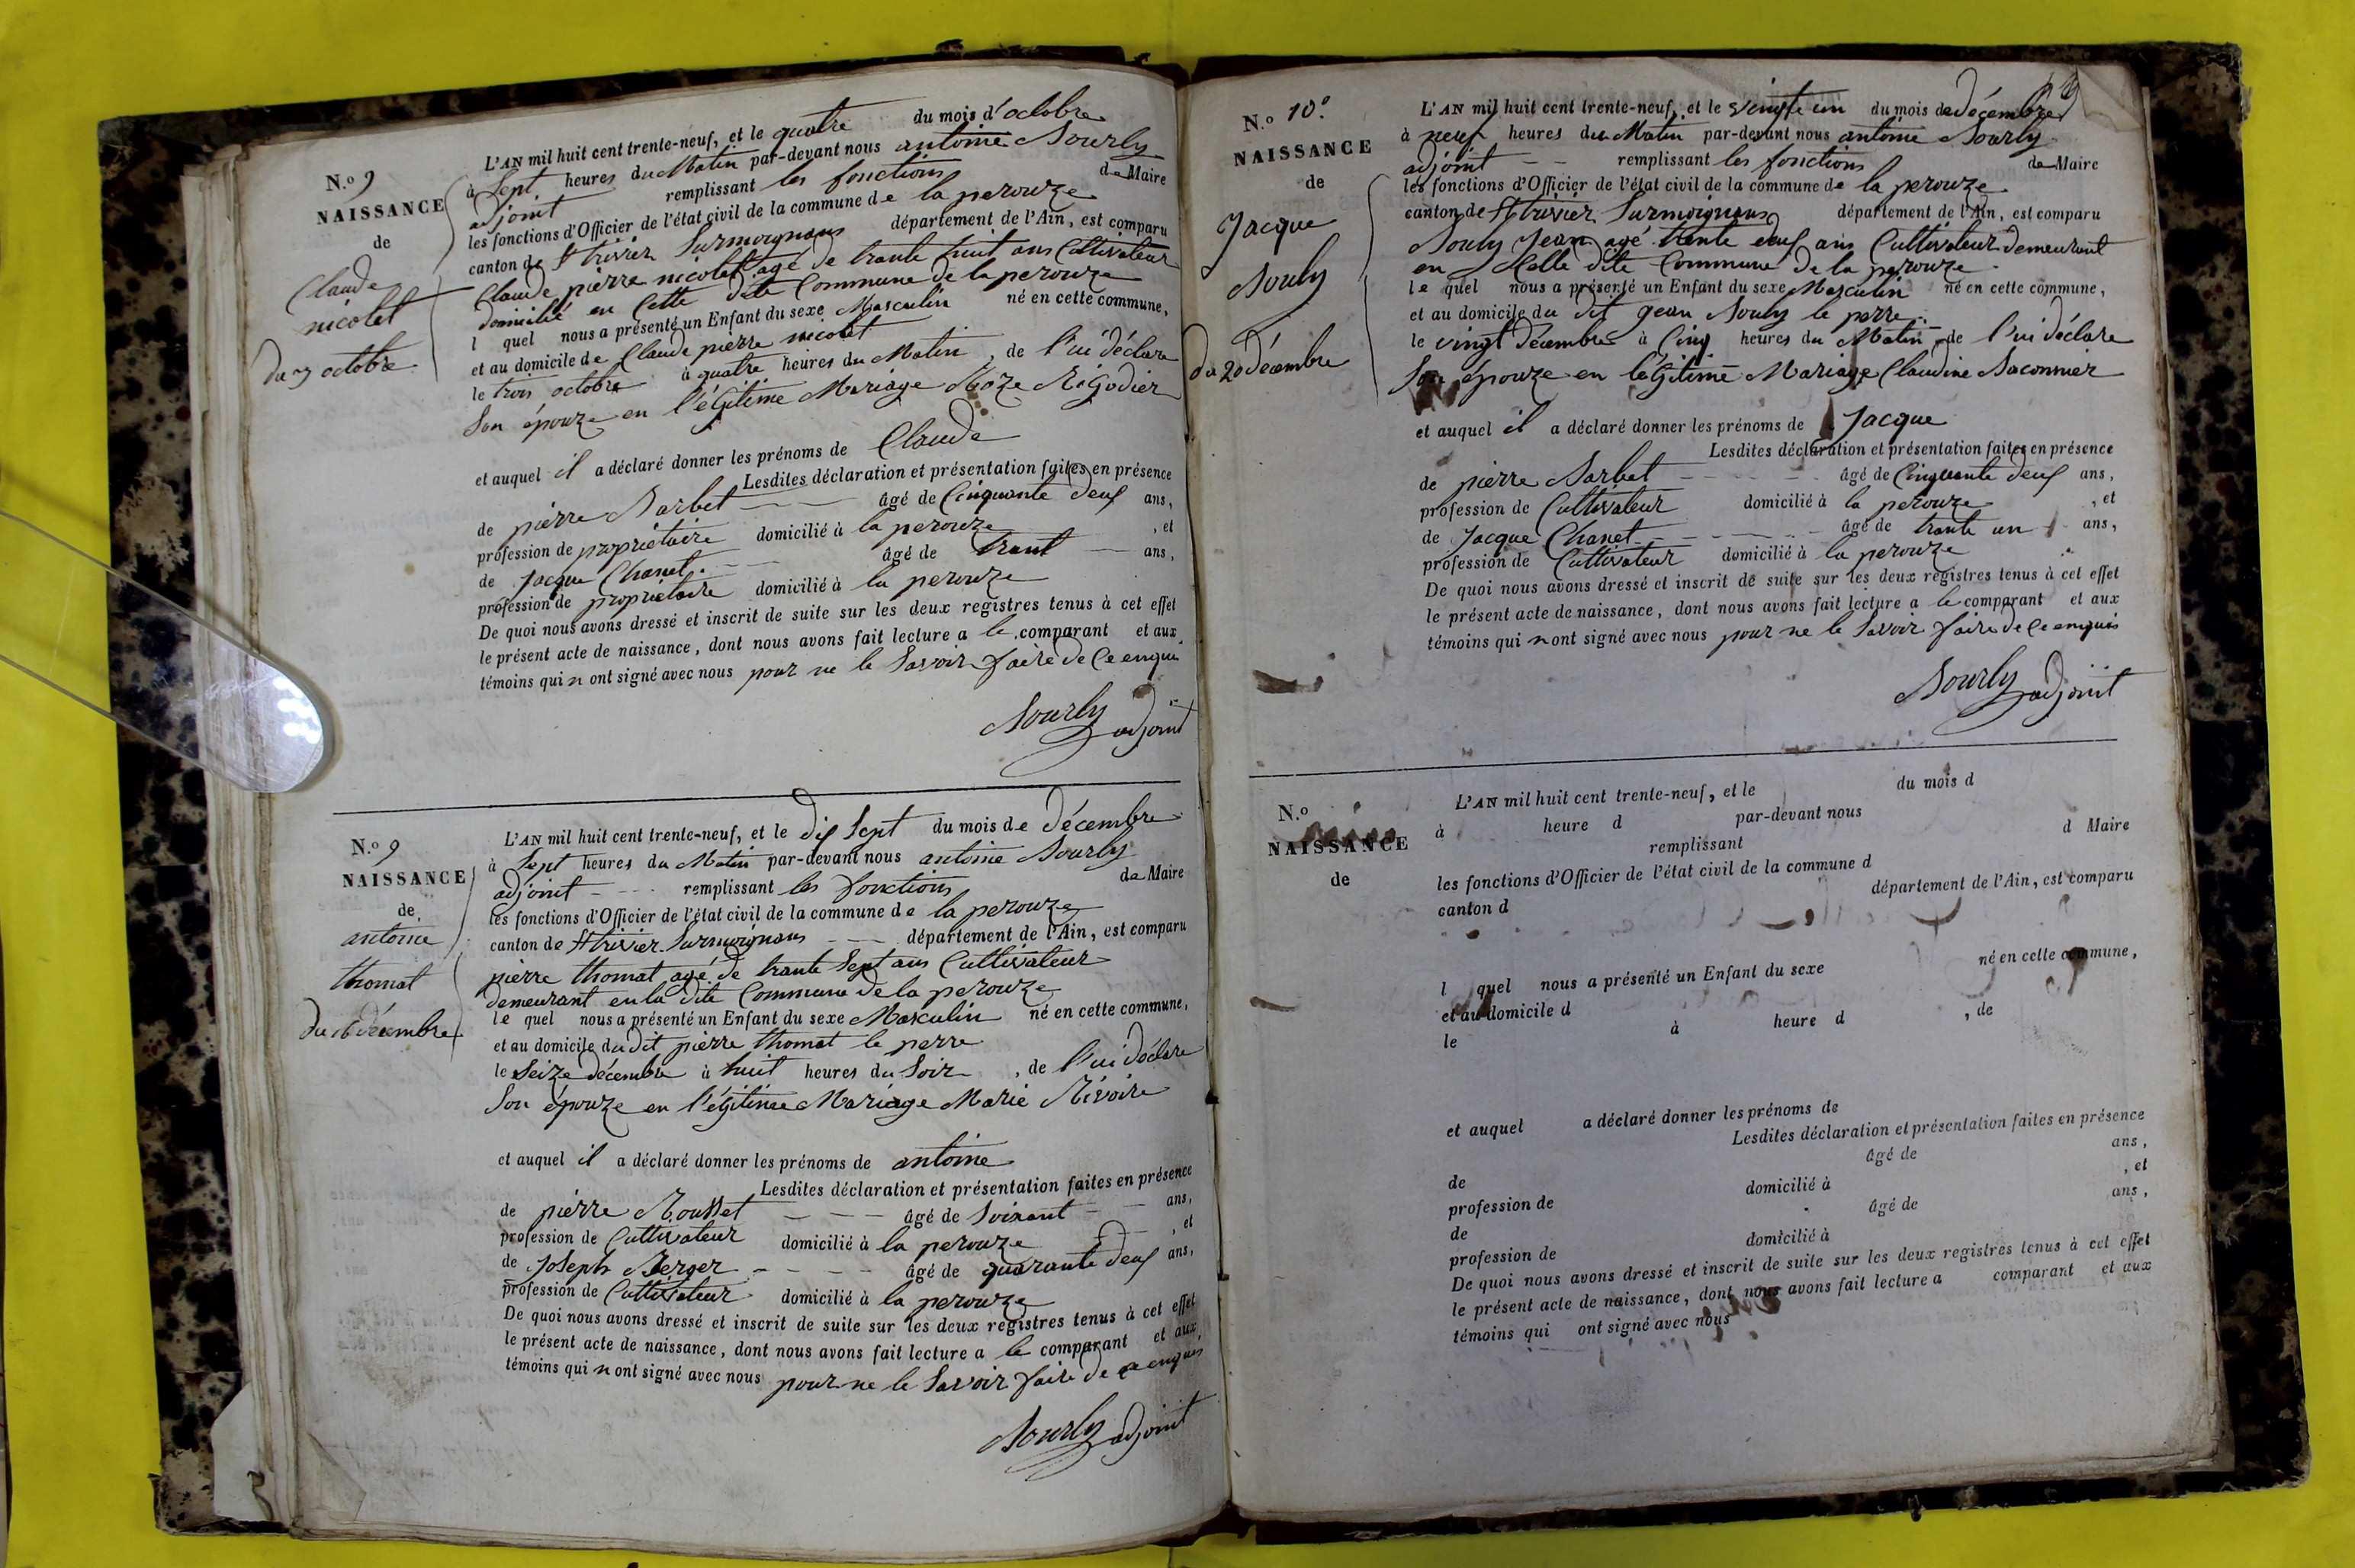 N.o 9
NAISSANCE
de
Claude
nicolet
du 3 octobre
L'AN mil huit cent trente-neuf, et le quatre du mois d'octobre
à Sept heures du Matin par-devant nous antoine Sourly
adjoint remplissant les fonctions de Maire
les fonctions d'Officier de l'état civil de la commune de la perouze
canton de St trivier Surmoignans département de l'Ain, est comparu
Claude pierre nicolet agé de trante huit ans Cultivateur
domicilié en Cette dite Commune de la perouze
l quel nous a présenté un Enfant du sexe Masculin né en cette commune,
et au domicile de Claude pierre nicolet
le trois octobre à quatre heures du Matin, de l'ui déclare
Son épouze en l'égitime Mariage Roze Rigodier
et auquel il a déclaré donner les prénoms de Claude
Lesdites déclaration et présentation faites en présence
de pierre Barbet âgé de Cinquante deux ans,
profession de propriétaire domicilié à la perouze , et
de Jacque Chanet âgé de trant ans,
profession de propriétaire domicilié à la perouze
De quoi nous avons dressé et inscrit de suite sur les deux registres tenus à cet effet
le présent acte de naissance, dont nous avons fait lecture a le comparant et aux
témoins qui n ont signé avec nous pour ne le Savoir faire de Ce enqui
Sourly adjoint
N.o 9
NAISSANCE
de
antoine
thomat
du 16 décembre
L'AN mil huit cent trente-neuf, et le dix Sept du mois de décembre
à Sept heures du Matin par-devant nous antoine Sourly
adjoint remplissant les fonctions de Maire
les fonctions d'Officier de l'état civil de la commune de la perouze
canton de St trivier Surmoignans département de l'Ain, est comparu
pierre thomat agé de trante Sept ans Cultivateur
demeurant en la dite Commune de la perouze
le quel nous a présenté un Enfant du sexe Masculin né en cette commune,
et au domicile du dit pierre thomat le perre
le Seize décembre à huit heures du Soir , de l'ui déclare
Son épouze en l'égitime Mariage Marie Rivoire
et auquel il a déclaré donner les prénoms de antoine
Lesdites déclaration et présentation faites en présence
de pierre Rousset âgé de Soixant ans,
profession de Cultivateur domicilié à la perouze , et
de Joseph Berger âgé de quarante deux ans,
profession de Cultivateur domicilié à la perouze
De quoi nous avons dressé et inscrit de suite sur les deux registres tenus à cet effet
le présent acte de naissance, dont nous avons fait lecture a le comparant et aux
témoins qui n ont signé avec nous pour ne le Savoir faire de ce enquis
Sourly adjoint
N.o 10.o
NAISSANCE
de
Jacque
Souly
du 20 décembre
L'AN mil huit cent trente-neuf, et le vingte un du mois de décembre
à neuf heures du Matin par-devant nous antoine Sourly
adjoint remplissant les fonctions de Maire
les fonctions d'Officier de l'état civil de la commune de la perouze
canton de St trivier Surmoignans département de l'Ain, est comparu
Souly Jean agé trente deux ans Cultivateur demeurant
en Celle dite Commune de la perouze
le quel nous a présenté un Enfant du sexe Masculin né en cette commune,
et au domicile du dit gean Souly le perre
le vingt décembre à Cinq heures du Matin, de l'ui déclare
Son épouze en légitime Mariage Claudine Saconnier
et auquel il a déclaré donner les prénoms de Jacque
Lesdites déclaration et présentation faites en présence
de pierre Barbet âgé de Cinquante deux ans,
profession de Cultivateur domicilié à la perouze , et
de Jacque Chanet âgé de trante un ans,
profession de Cultivateur domicilié à la perouze
De quoi nous avons dressé et inscrit de suite sur les deux registres tenus à cet effet
le présent acte de naissance, dont nous avons fait lecture a le comparant et aux
témoins qui n ont signé avec nous pour ne le Savoir faire de Ce enquis
Sourly adjoint
N.o
NAISSANCE
de
L'AN mil huit cent trente-neuf, et le du mois d
à heure d par-devant nous
remplissant d Maire
les fonctions d'Officier de l'état civil de la commune d
canton d département de l'Ain, est comparu
l quel nous a présenté un Enfant du sexe né en cette commune,
et au domicile d
le à heure d , de
et auquel a déclaré donner les prénoms de
Lesdites déclaration et présentation faites en présence
de âgé de ans,
profession de domicilié à , et
de âgé de ans,
profession de domicilié à
De quoi nous avons dressé et inscrit de suite sur les deux registres tenus à cet effet
le présent acte de naissance, dont nous avons fait lecture a comparant et aux
témoins qui ont signé avec nous